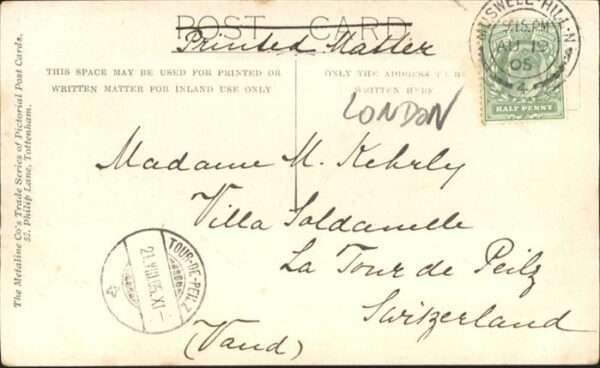 POST CARD
Printed Matter
THIS SPACE MAY BE USED FOR PRINTED OR
WRITTEN MATTER FOR INLAND USE ONLY
ONLY THE ADDRESS
WRITTEN HERE
LONDON
MUSWELL-HILL-N
7.15.PM
AU 19
05
4
HALF PENNY
Madame M. Kehrly
Villa Soldanelle
La Tour de Peilz
Switzerland
(Vaud)
TOUR-DE-PEILZ
21.VIII.05.XI-
The Metaline Co's Trade Series of Pictorial Post Cards.
52, Philip Lane, Tottenham.